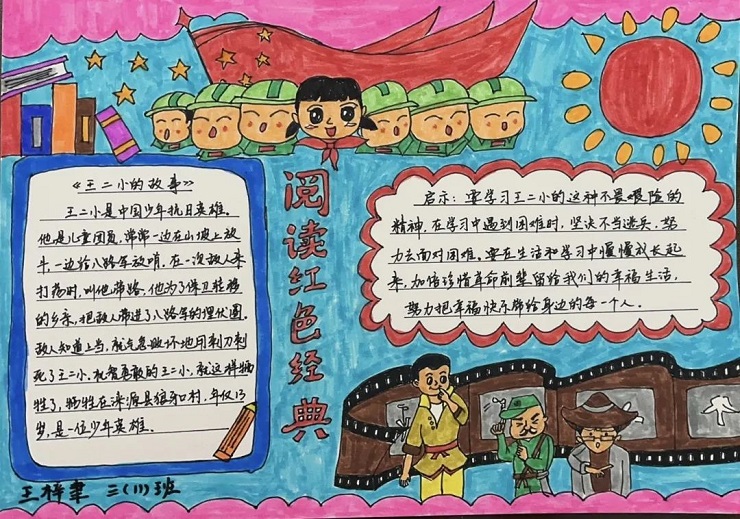 阅读红色经典
《王二小的故事》
王二小是中国少年抗日英雄。
他是儿童团员,常常一边在山坡上放
牛,一边给八路军放哨,在一次敌人来
打荡时,叫他带路。他为了保卫转移
的乡亲,把敌人带进了八路军的埋伏圈。
敌人知道上当,就气急败坏地用刺刀刺
死了王二小,机智勇敢的王二小,就这样牺
牲了,牺牲在涞源县狼牙口村,年仅13
岁,是一位少年英雄。
启示:要学习王二小的这种不畏艰险的
精神,在学习中遇到困难时,坚决不当逃兵,努
力去面对困难。要在生活和学习中慢慢成长起
来,加倍珍惜革命前辈留给我们的幸福生活,
努力把幸福快乐带给身边的每一个人。
王梓聿 三(11)班